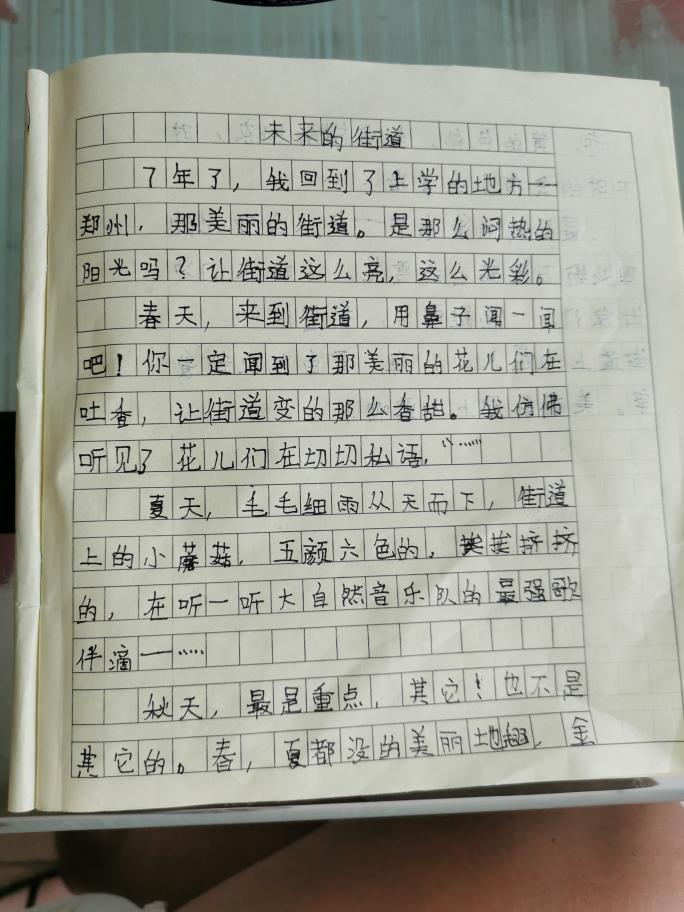 未来的街道
7年了，我回到了上学的地方一
郑州，那美丽的街道。是那么闷热的
阳光吗？让街道这么亮，这么光彩。
春天，来到街道，用鼻子闻一闻
吧！你一定闻到了那美丽的花儿们在
吐香，让街道变的那么香甜。我仿佛
听见了花儿们在切切私语，……
夏天，毛毛细雨从天而下，街道
上的小蘑菇，五颜六色的，挨挨挤挤
的，在听一听大自然音乐队的最强歌
伴滴一……
秋天，最是重点，其它！也不是
其它的。春，夏都没的美丽地趣，金